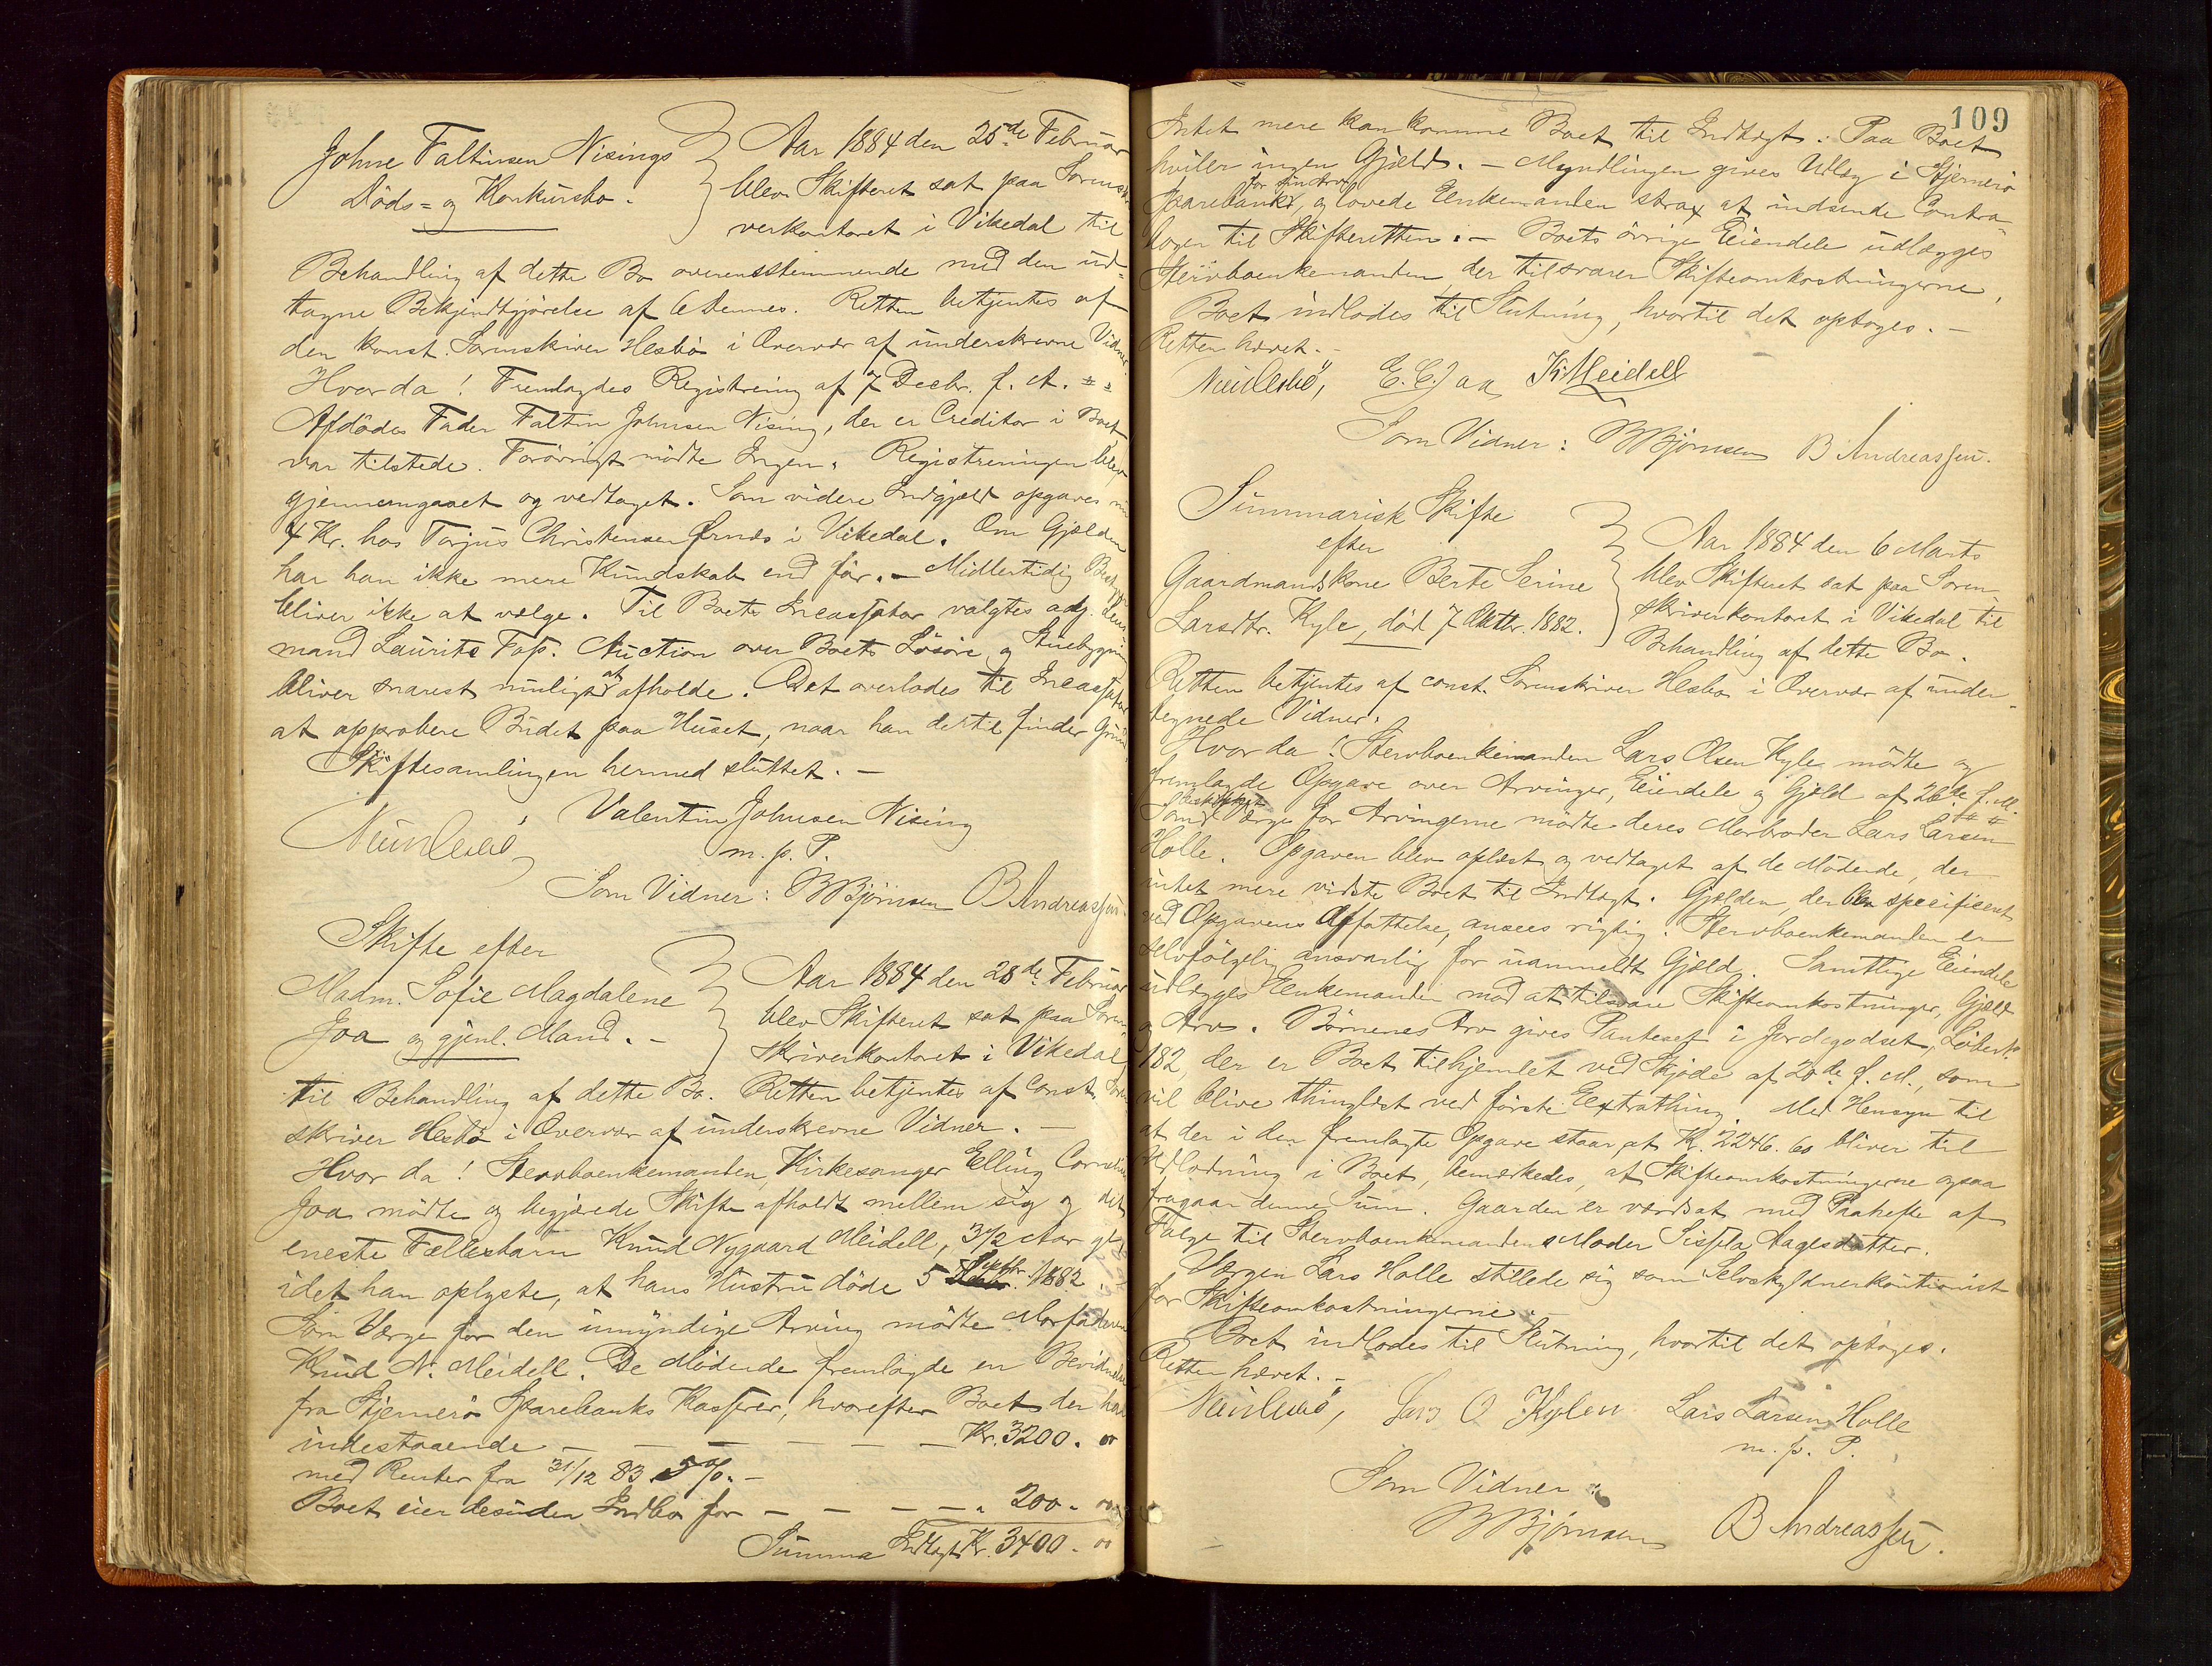 Johne Faltinsen Nisings
Döds= og Konkursbo.
Aar 1884 den 25de Februar
blev Skifteret sat paa Sorenskri
verkontoret i Vikedal til
Behandling af dette Bo overensstemmende med den ud-
tagne Bekjendtgjörelse af 6 dennes. Retten betjentes af
den konst. Sorenskriver Hesbö i Overvær af underskrevne Vidner.
Hvorda! Fremlagdes Registrering af 7 Decbr. f. A.
Afdödes Fader Faltin Johnsen Nising, der er Creditor i Boet
var tilstede. Forövrigt mödte Ingen. Registreringen blev
gjennemgaaet og vedtaget. Som videre Indgjæld opgaves
4 Kr. hos Torjus Christensen Örnæs i Vikedal. Om Gjælden
har han ikke mere Kundskab end för. — Midlertidig
bliver ikke at vælge. Til Boets Incassator valgtes adj. Lens
mand Laurits Fos. Auction over Boets Lösöre og Stuebygning
bliver snarest muligst at afholde. Det overlodes til Incassator
at approbere Budet paa Huset, naar han dertil finder Grund
Skiftesamlingen hermed sluttet. —
Valentin Johnsen Nising
m. p. P.
Som Vidner: B Björnsen B Andreassen.
Skifte efter
Madm. Sofie Magdalene
Joa og gjenl. Mand. —
Aar 1884 den 28de Februar
blev Skifteret sat paa Soren
skriverkontoret i Vikedal,
til Behandling af dette Bo. Retten betjentes af const. Soren
skriver Hesbö i Overvær af underskrevne Vidner. —
Hvor da! Stervboenkemanden, Kirkesanger Elling Cornelius
Joa mödte og begjærede Skifte afholdt mellem sig og det
eneste Fællesbarn Knud Nygaard Meidell, 3 1/2 Aar gl.
idet han oplyste, at hans Hustru döde 5 Septbr. 1882.
Som Værge for den umyndige Arving mödte Morfaderen
Knud N. Meidell. De Mödende fremlagde en Bevidnelse
fra Stjernerö Sparebanks Kasserer, hvorefter Boet der har
indestaaende — — — — — — Kr. 3200. 00
med Renter fra 31/12 83. 5 %. —
Boet eier desuden Indbo for — — — — „ 200. 00
Summa Indtægt Kr. 3400. 00
109
Intet mere kan komme Boet til Indtægt. Paa Boet
hviler ingen Gjæld. — Myndlingen gives Udlæg i Stjernerö
Sparebank for sin Arv, og lovede Enkemanden strax at indsende Contra-
bogen til Skifteretten. — Boets övrige Eiendele udlægges
Stervboenkemanden, der tilsvarer Skifteomkostningerne.
Boet indlodes til Slutning, hvortil det optoges. —
Retten hævet. —
E. C. Joa K Meidell
Som Vidner: B Björnsen B Andreassen.
Summarisk Skifte
efter
Gaardmandskone Berte Serine
Larsdtr. Kyle, död 7 Oktbr. 1882.
Aar 1884 den 6 Marts
blev Skifteret sat paa Soren-
skriverkontoret i Vikedal til
Behandling af dette Bo.
Retten betjentes af const. Sorenskriver Hesbö i Overvær af under-
tegnede Vidner.
Hvor da! Stervboenkemanden Lars Olsen Kyle mödte og
fremlagde Opgave over Arvinger, Eiendele og Gjæld af 26de f. M.
Som beskikket Værge for Arvingerne mödte deres Morbroder Lars Larsen
Holle. Opgaven blev oplæst og vedtaget af de Mödende, der
intet mere vidste Boet til Indtægt. Gjælden, der blev specificeret
ved Opgavens Affattelse, ansees rigtig. Stervboenkemanden er
selvfölgelig ansvarlig for uanmeldt Gjæld. Samtlige Eiendele
udlægges Enkemanden mod at tilsvare Skifteomkostninger, Gjæld
og Arv. Börnenes Arv gives Panteret i Jordegodset, Löbenr.
182, der er Boet tilhjemlet ved Skjöde af 20de f. M., som
vil blive thinglæst ved förste Extrathing. Med Hensyn til
at der i den fremlagte Opgave staar, at Kr. 2246. 60 bliver til
Udlodning i Boet, bemærkedes, at Skifteomkostningerne ogsaa
fragaar denne Sum. Gaarden er værdsat med Paahefte af
Følge til Stervboenkemandens Moder Sissela Aagesdatter.
Værgen Lars Holle stillede sig som Selvskyldnerkautionist
for Skifteomkostningerne. —
Boet indlodes til Slutning, hvortil det optoges.
Retten hævet. —
Lars O Kylen Lars Larsen Holle
m. p. P.
Som Vidner:
B Björnsen B Andreassen.